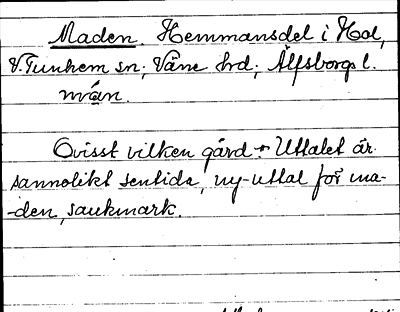 Maden. Hemmansdel i Hol,
V. Tunhem sn; Väne hrd; Älfsborgs l.
mán.
Ovisst vilken gård. Uttalet är
sannolikt sentida, ny-uttal for ma-
-den, sankmark.